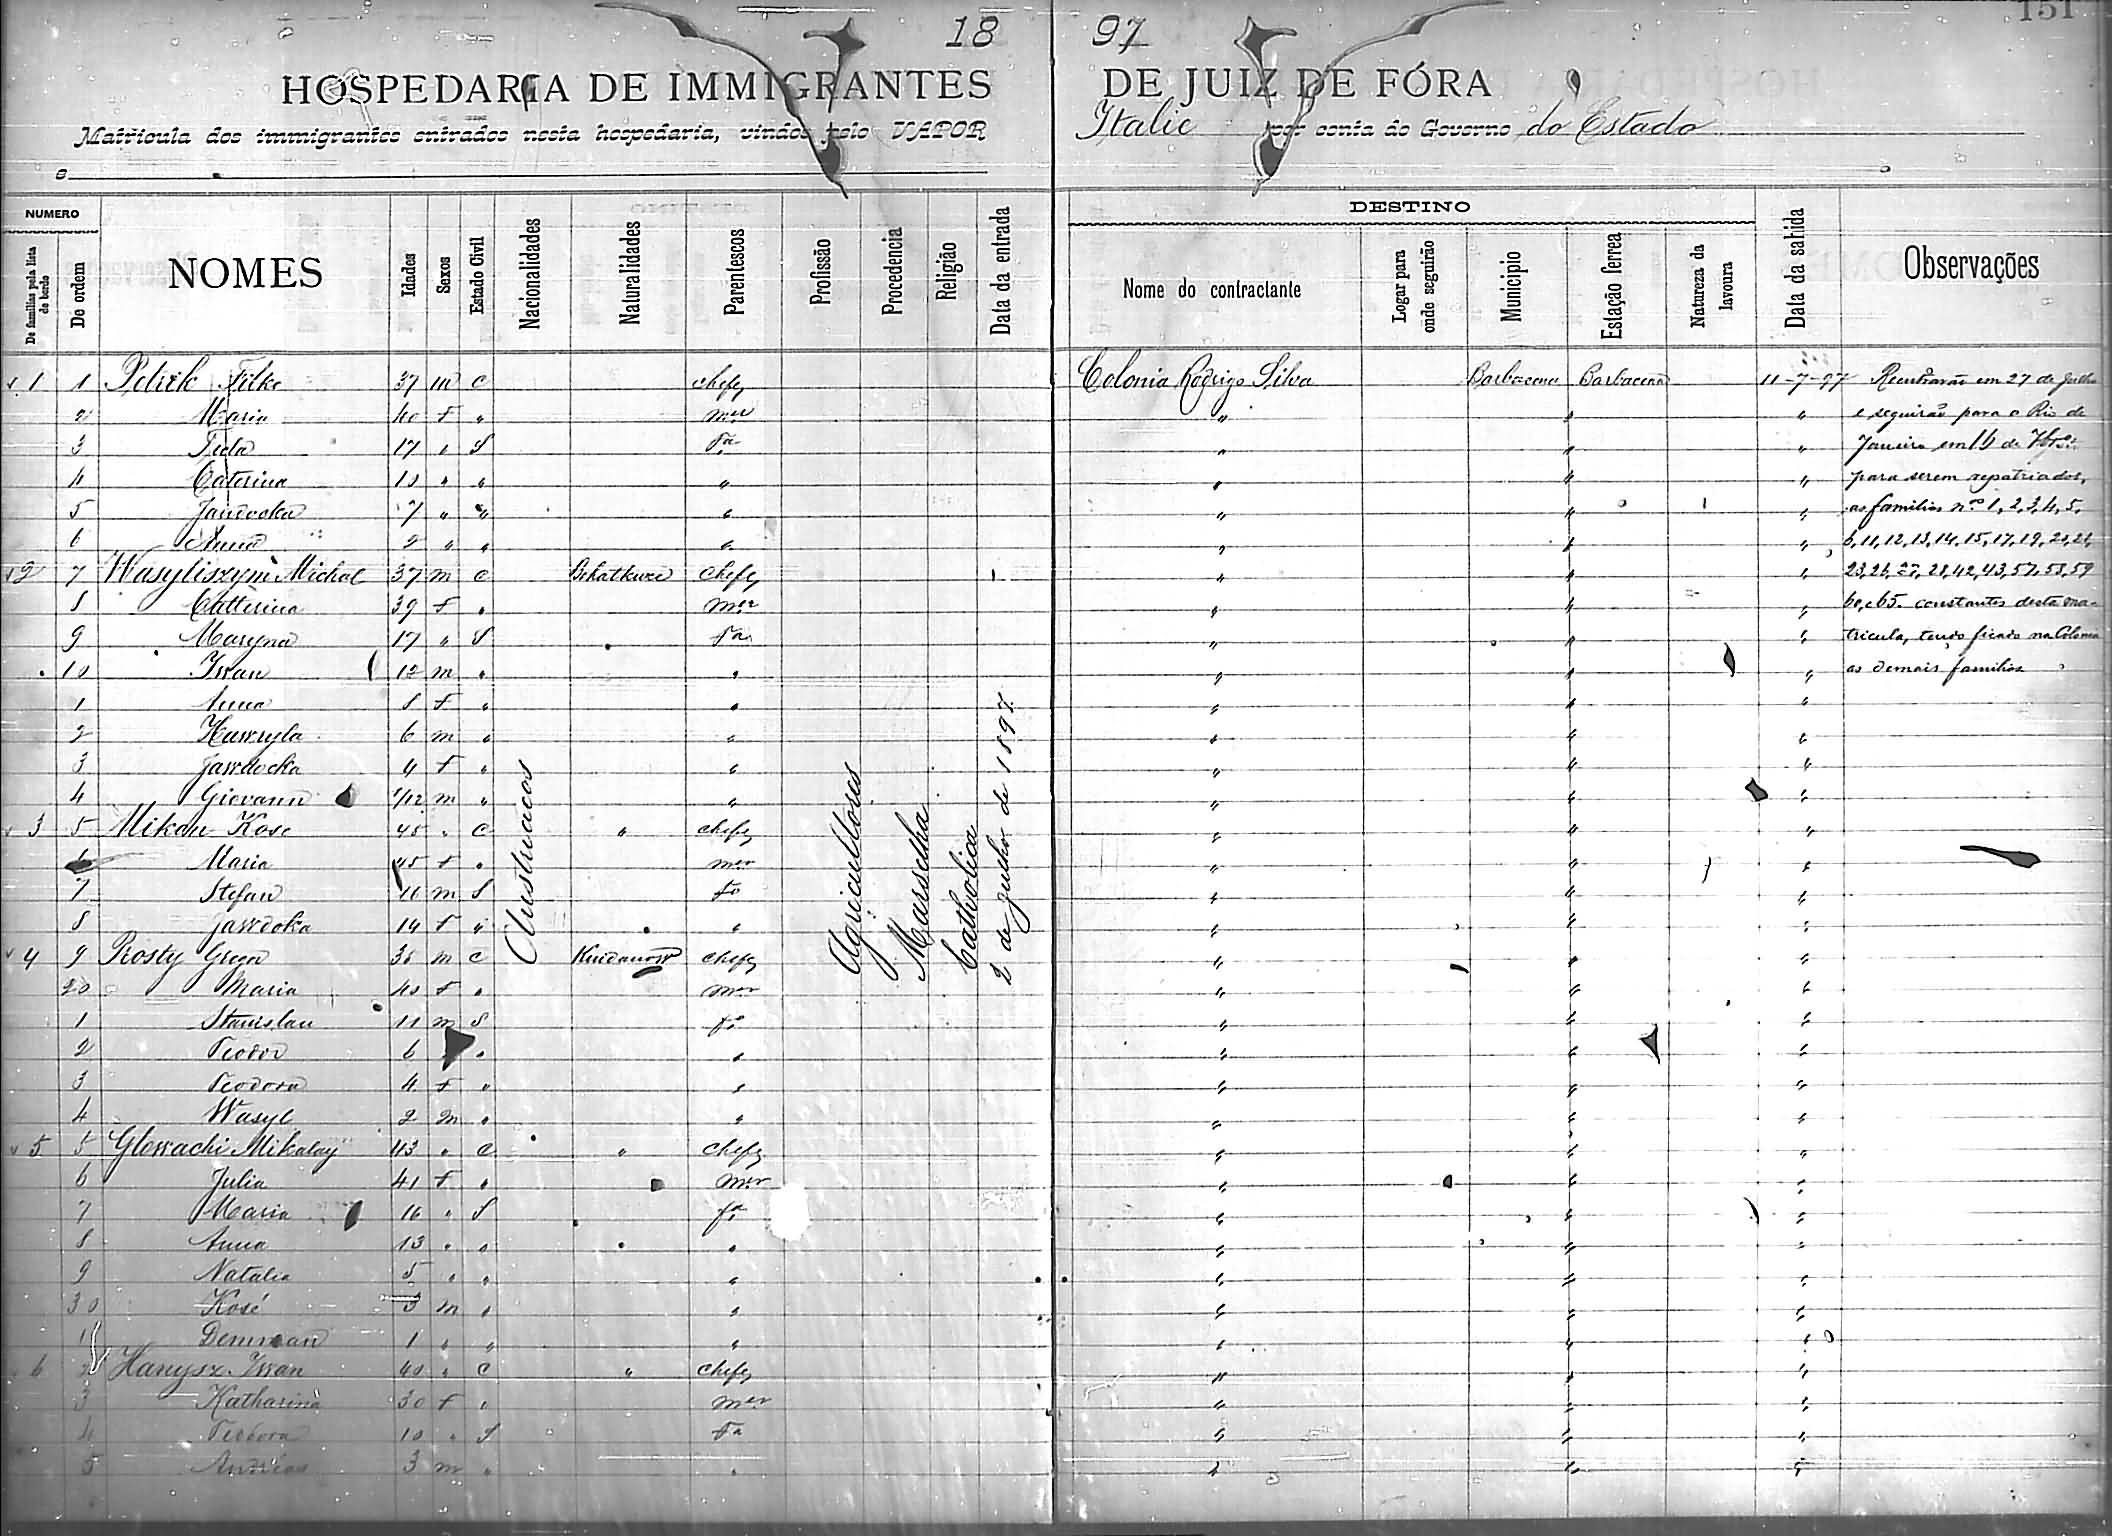 18 97 151
HOSPEDARIA DE IMMIGRANTES DE JUIZ DE FÓRA
Matricula dos immigrantes entrados nesta hospedaria, vindos pelo VAPOR Italie por conta do Governo do Estado
e
NUMERO
De familias pela lista de bordo
De ordem
NOMES
Idades
Sexos
Estado Civil
Nacionalidades
Naturalidades
Parentescos
Profissão
Procedencia
Religião
Data da entrada
DESTINO
Nome do contractante
Logar para onde seguirão
Municipio
Estação ferrea
Natureza da lavoura
Data da sahida
Observações
1 1 Petrik Filko 37 m c chefe Colonia Rodrigo Silva Barbacena Barbacena 11-7-97 Reentrarão em 27 de Julho
2 Maria 40 f " mer " " " e seguirão para o Rio de
3 Tecla 17 " S fa " " " Janeiro em 16 de 7bro
4 Caterina 10 " " " " " " para serem repatriados,
5 7 " " " " " " as familias nos 1, 2, 3, 4, 5,
6 Anna 2 " " " " " " 6, 11, 12, 13, 14, 15, 17, 19, 20, 21,
2 7 Wasyliszym Michal 37 m c chefe " " " 23, 26, 27, 28, 42, 43, 57, 58, 59
8 Catterina 39 f " mer " " " 60, e 65. constantes desta ma-
9 Maryna 17 " S fa " " " tricula, tendo ficado na Colonia
10 Iwan 12 m " " " " " as demais familias
1 Anna 8 f " " " " "
2 Hawryla 6 m " " " " "
3 Jawdocka 4 f " " " " "
4 Giovann 1/12 m " " " " "
3 5 Mikan Kose 45 " c " chefe " " "
6 Maria 45 f " mer " " "
7 Stefan 16 m S fo " " "
8 Jawdoka 14 f " " " " "
4 9 Prosty Gregor 38 m c Kuidanow chefe " " "
20 Maria 40 f " mer " " "
1 Stanislau 11 m S fo " " "
2 Teodor 6 " " " " "
3 Teodora 4 f " " " " "
4 Wasyl 2 m " " " " "
5 5 Glowachi Mikalay 43 " c " chefe " " "
6 Julia 41 f " mer " " "
7 Maria 16 " S fa " " "
8 Anna 13 " " " " " "
9 Natalia 5 " " " " " "
30 Kosé 3 m " " " " "
1 Demman 1 " " " " " "
6 2 Hanysz Iwan 40 " c " chefe " " "
3 Katharina 30 f " mer " " "
4 Teodora 10 " S fa " " "
5 Andréas 3 m " " " " "
Austriacos
Agricultores
Marselha
Catholica
2 de Junho de 1897.